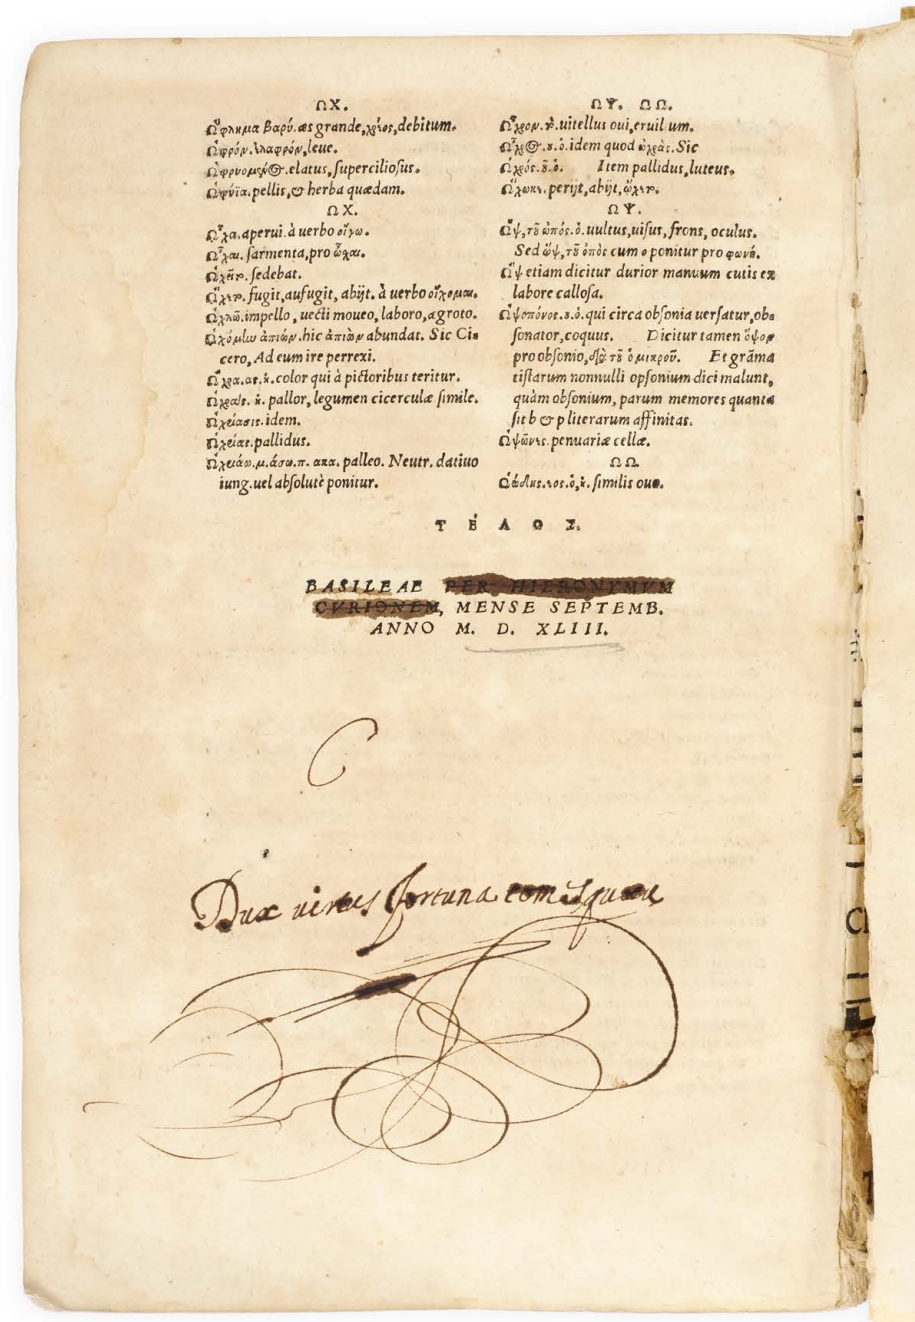 ΩΧ.
Ὤφλημα βαρύ. æs grande, χρέος, debitum.
Ὠφρόν. ἐλαφρόν, leue.
Ὠφρυομένος. elatus, superciliosus.
Ὠφύϊα. pellis, & herba quædam.
ΩΧ.
Ὦχα. aperui. à uerbo οἴγω.
Ὦχαι. sarmenta, pro ὦχαι.
Ὠχῆρ. sedebat.
fugit, aufugit, abijt. à uerbo οἴχομαι.
Ὠχλῶ. impello, uecti moueo, laboro, ægroto.
Ὠχόμην ἀπιών. hic ἀπιὼν abundat. Sic Ci=
cero, Ad eum ire perrexi.
Ὤχρα.ας.ἡ. color qui à pictoribus teritur.
ἡ. pallor, legumen cicerculæ simile.
Ὠχρίασις. idem.
Ὠχρίας. pallidus.
Ὠχριάω.μ.άσω.π. ακα. palleo. Neutr. datiuo
iung. uel absolutè ponitur.
ΩΨ. ΩΩ.
Ὦχρον. uitellus oui, eruilium.
Ὦχρος.ου.ὁ. idem quod ὠχρὰς. Sic
Ὠχρός.οῦ.ὁ. Item pallidus, luteus.
Ὤχωκε. perijt, abijt,
ΩΨ.
Ὤψ, τοῦ ὠπός.ὁ. uultus, uisus, frons, oculus.
Sed ὤψ, τοῦ ὀπὸς cum o ponitur pro φωνή.
Ὤψ etiam dicitur durior manuum cutis ex
labore callosa.
Ὠψοπόνος.ου.ὁ. qui circa obsonia uersatur, ob=
sonator, coquus. Dicitur tamen ὄψον
pro obsonio, διὰ τοῦ ὁ μικροῦ. Et grãma
tistarum nonnulli opsonium dici malunt,
quàm obsonium, parum memores quanta
sit b & p literarum affinitas.
Ὠψῶνες. penuariæ cellæ.
ΩΩ.
Ὠώδης.εος.ὁ,ἡ. similis ouo.
ΤΕΛΟΣ.
BASILEAE PER HIERONYMUM
CVRIONEM, MENSE SEPTEMB.
ANNO M. D. XLIII.
C
Dux virtus fortuna comes